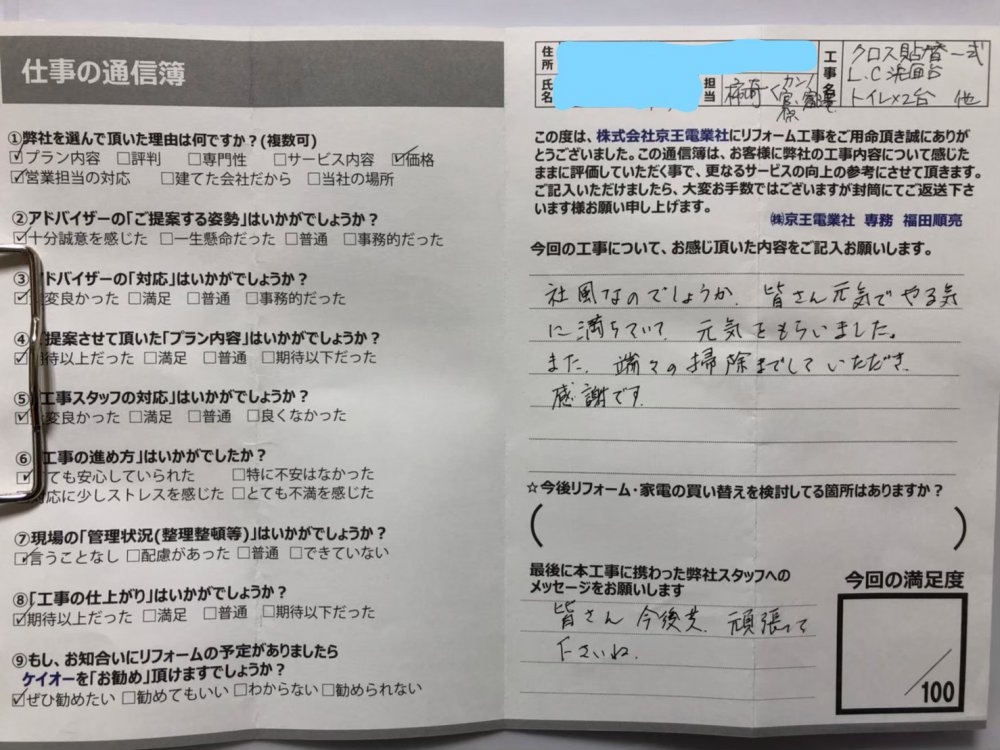 仕事の通信簿
①弊社を選んで頂いた理由は何ですか?(複数可)
☑プラン内容 □評判 □専門性 □サービス内容 ☑価格
☑営業担当の対応 □建てた会社だから □当社の場所
②アドバイザーの「ご提案する姿勢」はいかがでしょうか?
☑十分誠意を感じた □一生懸命だった □普通 □事務的だった
③ ドバイザーの「対応」はいかがでしょうか?
☑ 変良かった □満足 □普通 □事務的だった
④ 提案させて頂いた「プラン内容」はいかがでしょうか?
☑ 待以上だった □満足 □普通 □期待以下だった
⑤ 工事スタッフの対応」はいかがでしょうか?
☑ 変良かった □満足 □普通 □良くなかった
⑥ 工事の進め方」はいかがでしたか?
☑ ても安心していられた □特に不安はなかった
対応に少しストレスを感じた □とても不満を感じた
⑦現場の「管理状況(整理整頓等)」はいかがでしょうか?
☑言うことなし □配慮があった □普通 □できていない
⑧「工事の仕上がり」はいかがでしょうか?
☑期待以上だった □満足 □普通 □期待以下だった
⑨もし、お知合いにリフォームの予定がありましたら
ケイオーを「お勧め」頂けますでしょうか?
☑ぜひ勧めたい □勧めてもいい □わからない □勧められない
住所
氏名
担当
工事名
クロス貼替一式
L.C洗面台
トイレ×2台 他
この度は、株式会社京王電業社にリフォーム工事をご用命頂き誠にありが
とうございました。この通信簿は、お客様に弊社の工事内容について感じた
ままに評価していただく事で、更なるサービスの向上の参考にさせて頂きます。
ご記入いただけましたら、大変お手数ではございますが封筒にてご返送下さ
います様お願い申し上げます。
㈱京王電業社 専務 福田順亮
今回の工事について、お感じ頂いた内容をご記入お願いします。
社風なのでしょうか、皆さん元気でやる気
に満ちていて、元気をもらいました。
また、端々の掃除までしていただき、
感謝です。
☆今後リフォーム・家電の買い替えを検討してる箇所はありますか?
( )
最後に本工事に携わった弊社スタッフへの
メッセージをお願いします
皆さん今後共、頑張って
下さいね。
今回の満足度
/100